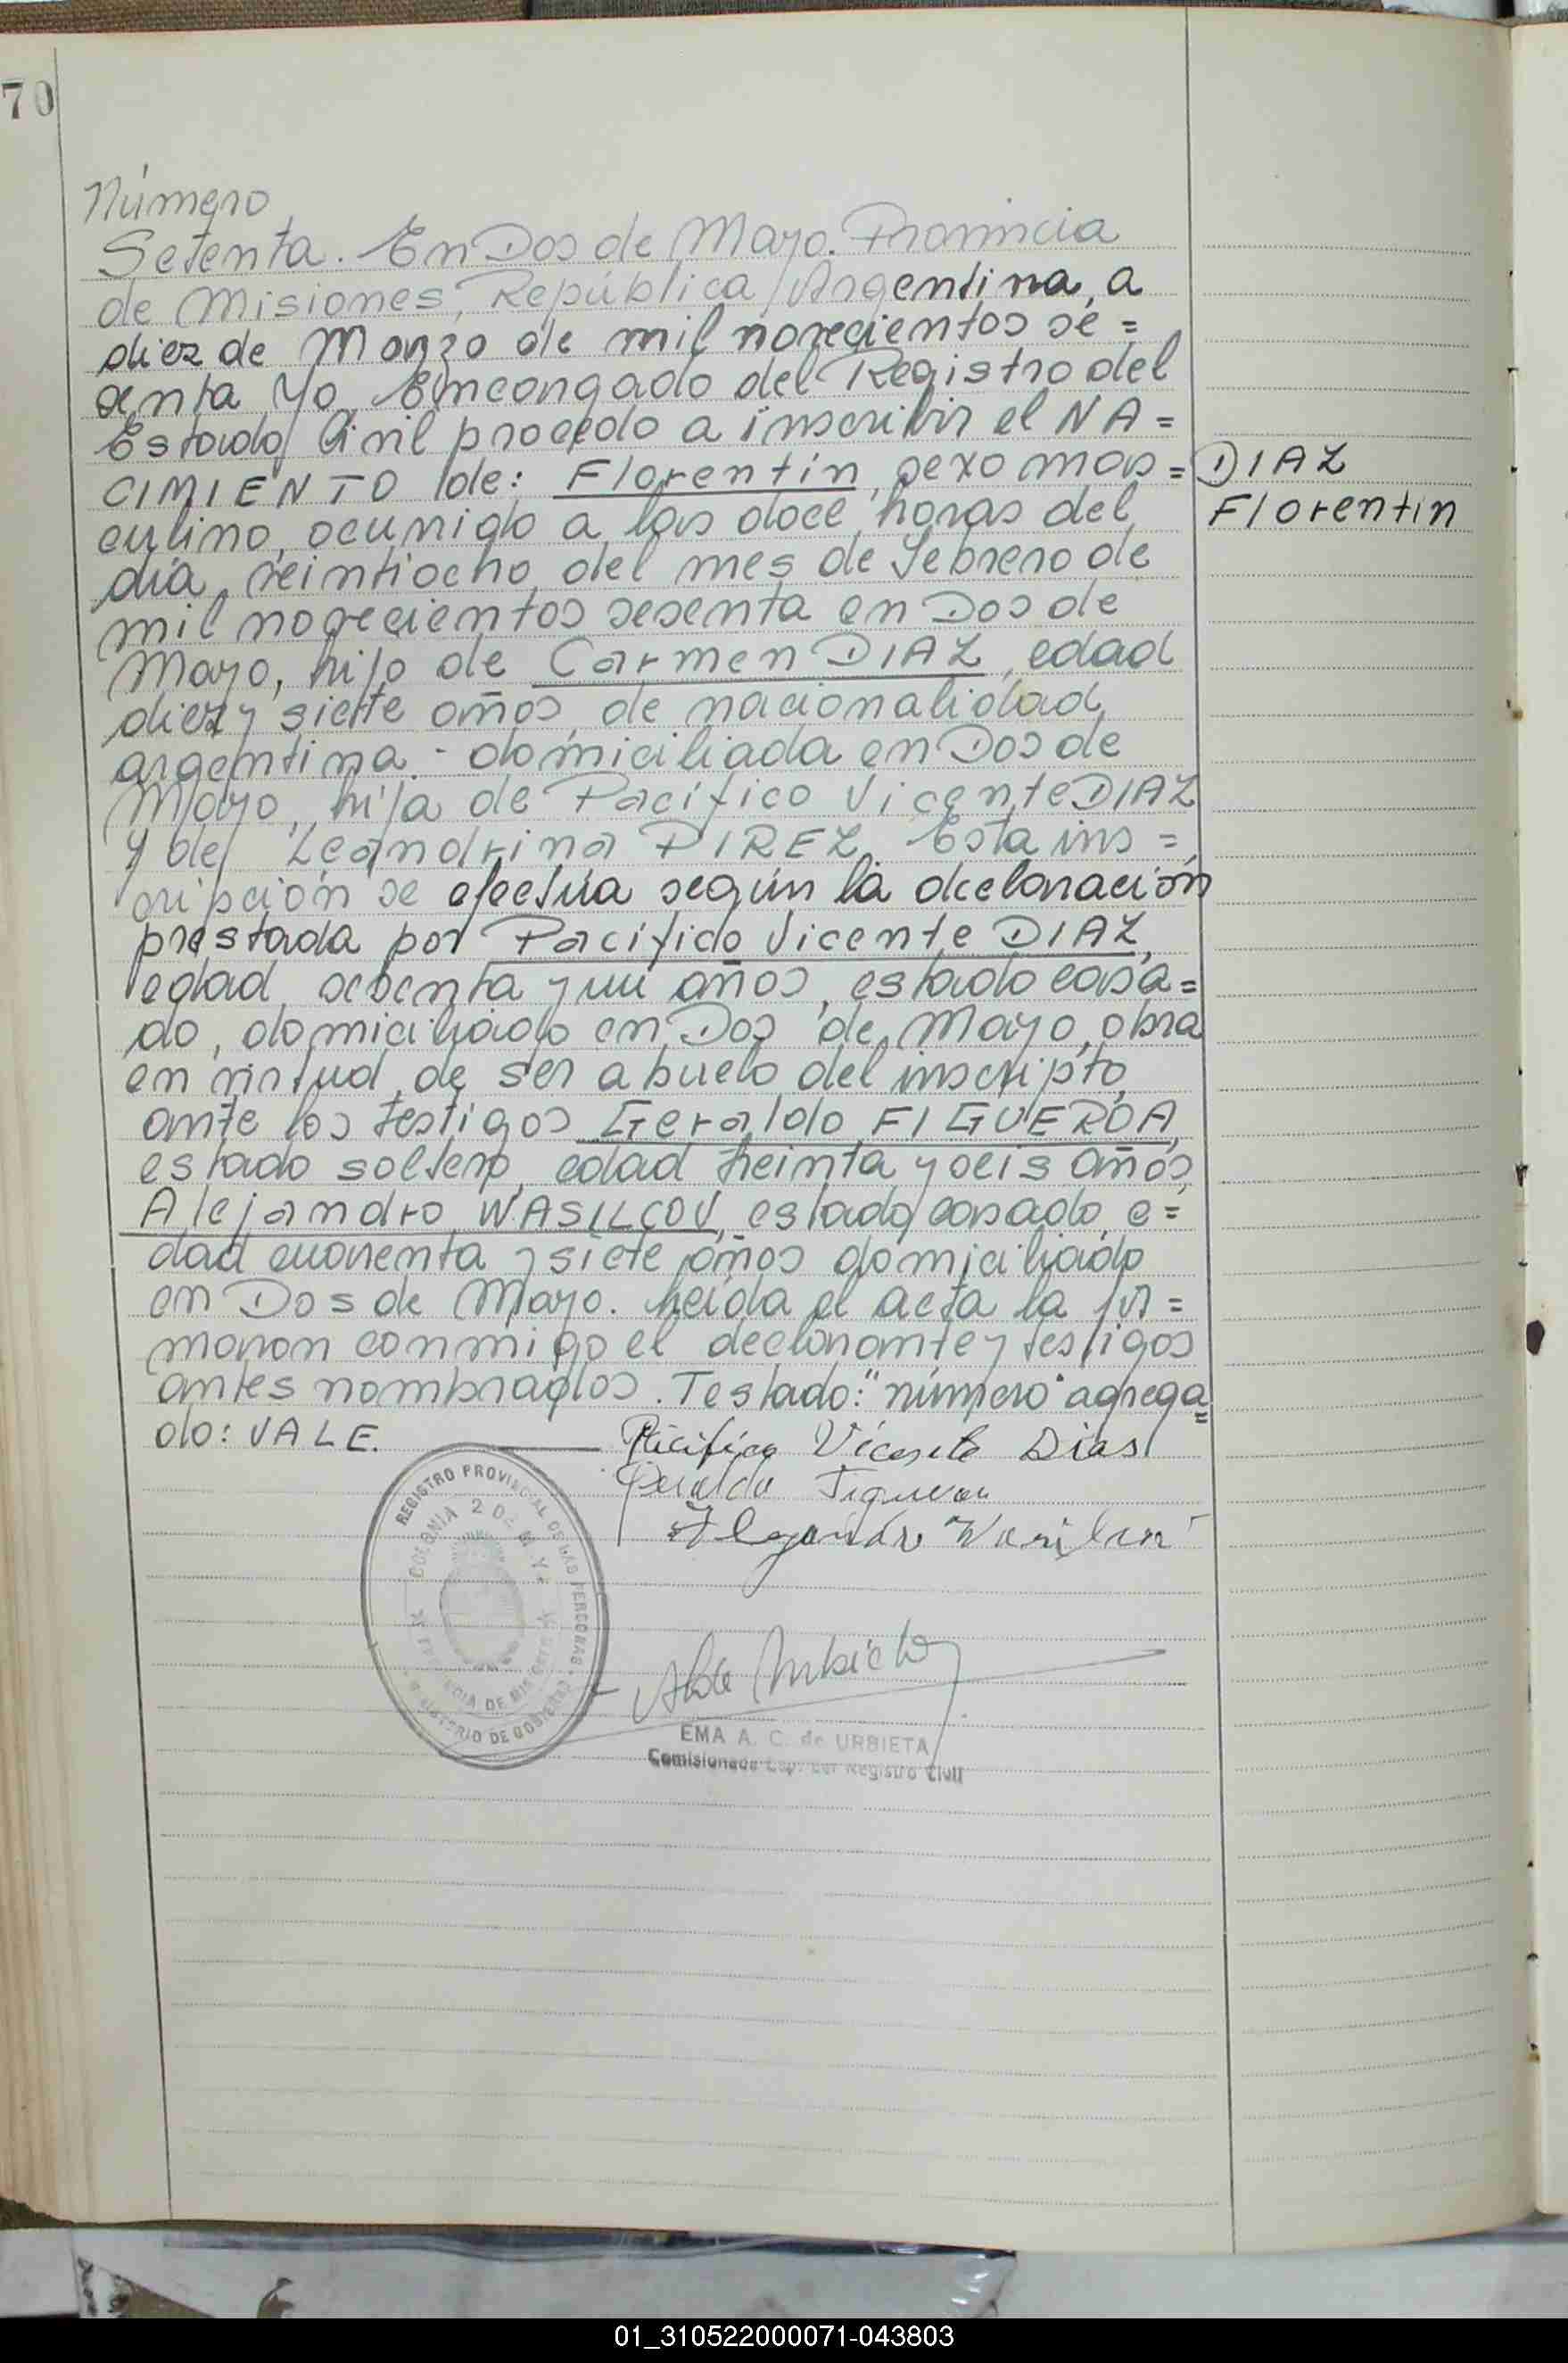 70
Número
Setenta. En Dos de Mayo. Provincia
de Misiones, República Argentina, a
diez de Marzo de mil novecientos se=
senta yo Encargado del Registro del
Estado Civil procedo a inscribir el NA=
CIMIENTO de: Florentin, sexo mas=
DIAZ
culino, ocurrido a las doce horas del
Florentin
día veintiocho del mes de Febrero de
mil novecientos sesenta en Dos de
Mayo, hijo de Carmen DIAZ, edad
diez y siete años, de nacionalidad
argentina - domiciliada en Dos de
Mayo, hija de Pacífico Vicente DIAZ
y de Leandrina PIREZ. Esta ins=
cripción se efectúa según la declaración
prestada por Pacífico Vicente DIAZ,
edad, sesenta y un años, estado casa=
do, domiciliado en Dos de Mayo, obra
en virtud de ser abuelo del inscripto,
ante los testigos Geraldo FIGUEROA,
estado soltero, edad treinta y seis años,
Alejandro WASILCOV, estado casado, e=
dad cuarenta y siete años domiciliado
en Dos de Mayo. Leída el acta la fir=
maron conmigo el declarante y testigos
antes nombrados. Testado: "número" agrega=
do: VALE.
Pacifico Vicente Dias
Geraldo Figueroa
REGISTRO PROVINCIAL DE LAS PERSONAS
COLONIA 2 DE MAYO
PROVINCIA DE MISIONES
MINISTERIO DE GOBIERNO
EMA A. C. de URBIETA
Comisionada Esp. del Registro Civil
01_310522000071-043803